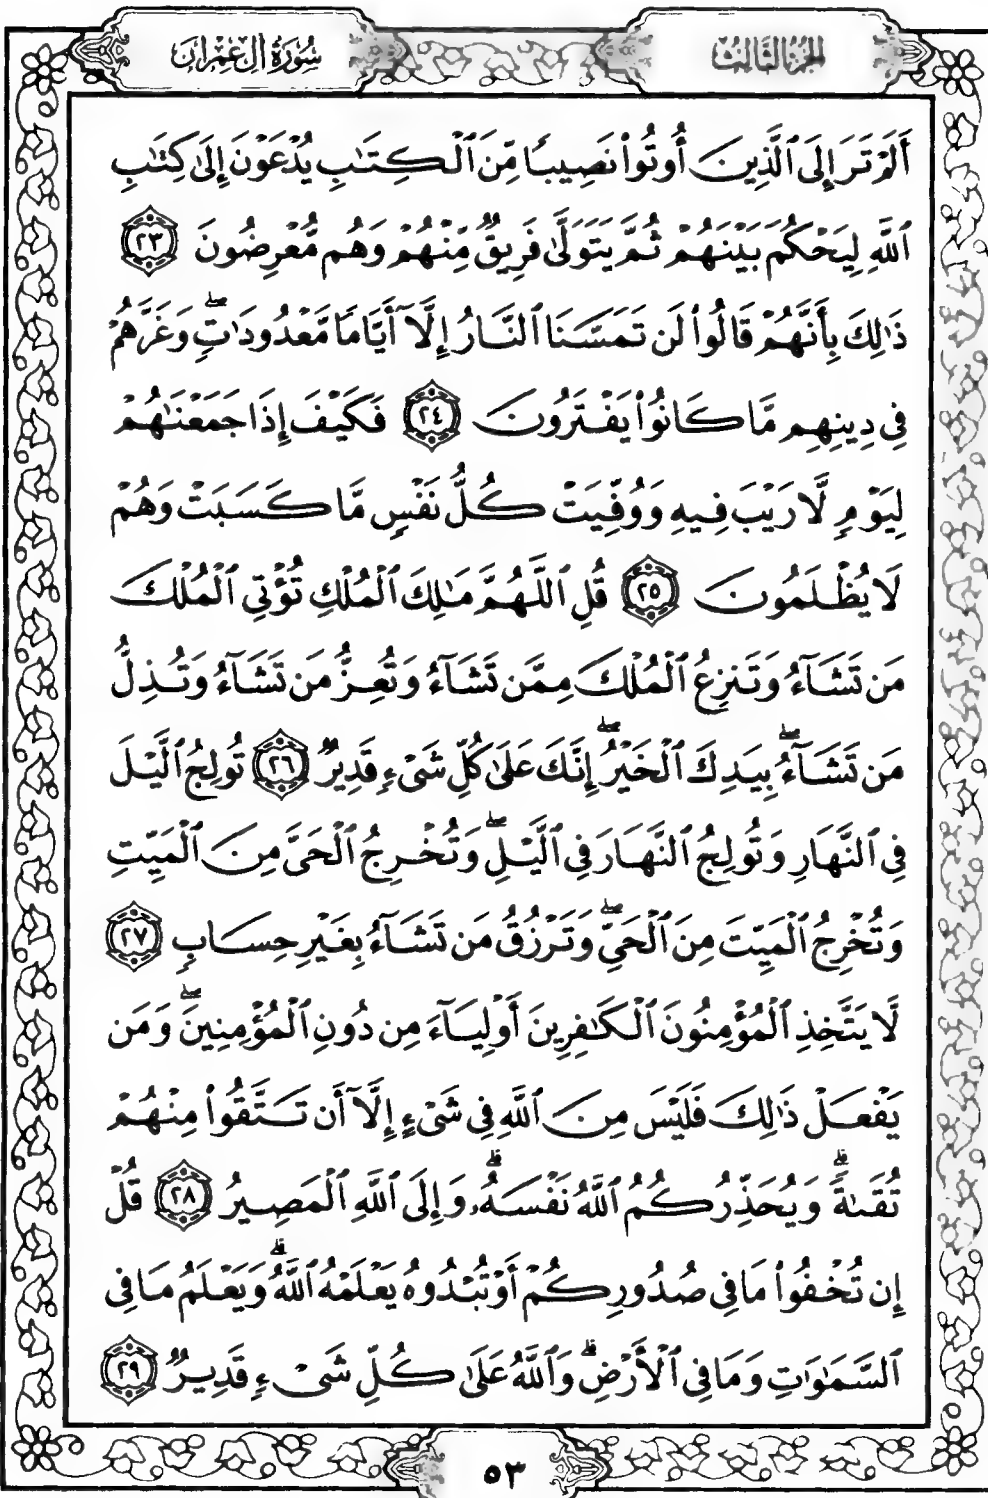 الجزء الثالث
سورة آل عمران
أَلَمْ تَرَ إِلَى ٱلَّذِينَ أُوتُوا۟ نَصِيبًا مِّنَ ٱلْكِتَٰبِ يُدْعَوْنَ إِلَىٰ كِتَٰبِ
ٱللَّهِ لِيَحْكُمَ بَيْنَهُمْ ثُمَّ يَتَوَلَّىٰ فَرِيقٌ مِّنْهُمْ وَهُم مُّعْرِضُونَ ٢٣
ذَٰلِكَ بِأَنَّهُمْ قَالُوا۟ لَن تَمَسَّنَا ٱلنَّارُ إِلَّآ أَيَّامًا مَّعْدُودَٰتٍۖ وَغَرَّهُمْ
فِى دِينِهِم مَّا كَانُوا۟ يَفْتَرُونَ ٢٤ فَكَيْفَ إِذَا جَمَعْنَٰهُمْ
لِيَوْمٍ لَّا رَيْبَ فِيهِ وَوُفِّيَتْ كُلُّ نَفْسٍ مَّا كَسَبَتْ وَهُمْ
لَا يُظْلَمُونَ ٢٥ قُلِ ٱللَّهُمَّ مَٰلِكَ ٱلْمُلْكِ تُؤْتِى ٱلْمُلْكَ
مَن تَشَآءُ وَتَنزِعُ ٱلْمُلْكَ مِمَّن تَشَآءُ وَتُعِزُّ مَن تَشَآءُ وَتُذِلُّ
مَن تَشَآءُۖ بِيَدِكَ ٱلْخَيْرُۖ إِنَّكَ عَلَىٰ كُلِّ شَىْءٍ قَدِيرٌ ٢٦ تُولِجُ ٱلَّيْلَ
فِى ٱلنَّهَارِ وَتُولِجُ ٱلنَّهَارَ فِى ٱلَّيْلِۖ وَتُخْرِجُ ٱلْحَىَّ مِنَ ٱلْمَيِّتِ
وَتُخْرِجُ ٱلْمَيِّتَ مِنَ ٱلْحَىِّۖ وَتَرْزُقُ مَن تَشَآءُ بِغَيْرِ حِسَابٍ ٢٧
لَّا يَتَّخِذِ ٱلْمُؤْمِنُونَ ٱلْكَٰفِرِينَ أَوْلِيَآءَ مِن دُونِ ٱلْمُؤْمِنِينَۖ وَمَن
يَفْعَلْ ذَٰلِكَ فَلَيْسَ مِنَ ٱللَّهِ فِى شَىْءٍ إِلَّآ أَن تَتَّقُوا۟ مِنْهُمْ
تُقَىٰةًۗ وَيُحَذِّرُكُمُ ٱللَّهُ نَفْسَهُۥۗ وَإِلَى ٱللَّهِ ٱلْمَصِيرُ ٢٨ قُلْ
إِن تُخْفُوا۟ مَا فِى صُدُورِكُمْ أَوْ تُبْدُوهُ يَعْلَمْهُ ٱللَّهُۗ وَيَعْلَمُ مَا فِى
ٱلسَّمَٰوَٰتِ وَمَا فِى ٱلْأَرْضِۗ وَٱللَّهُ عَلَىٰ كُلِّ شَىْءٍ قَدِيرٌ ٢٩
٥٣